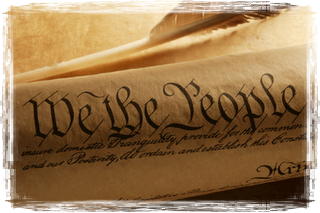 We the People
insure domestic Tranquility, provide for the common
and our Posterity, do ordain and establish this Const
Art